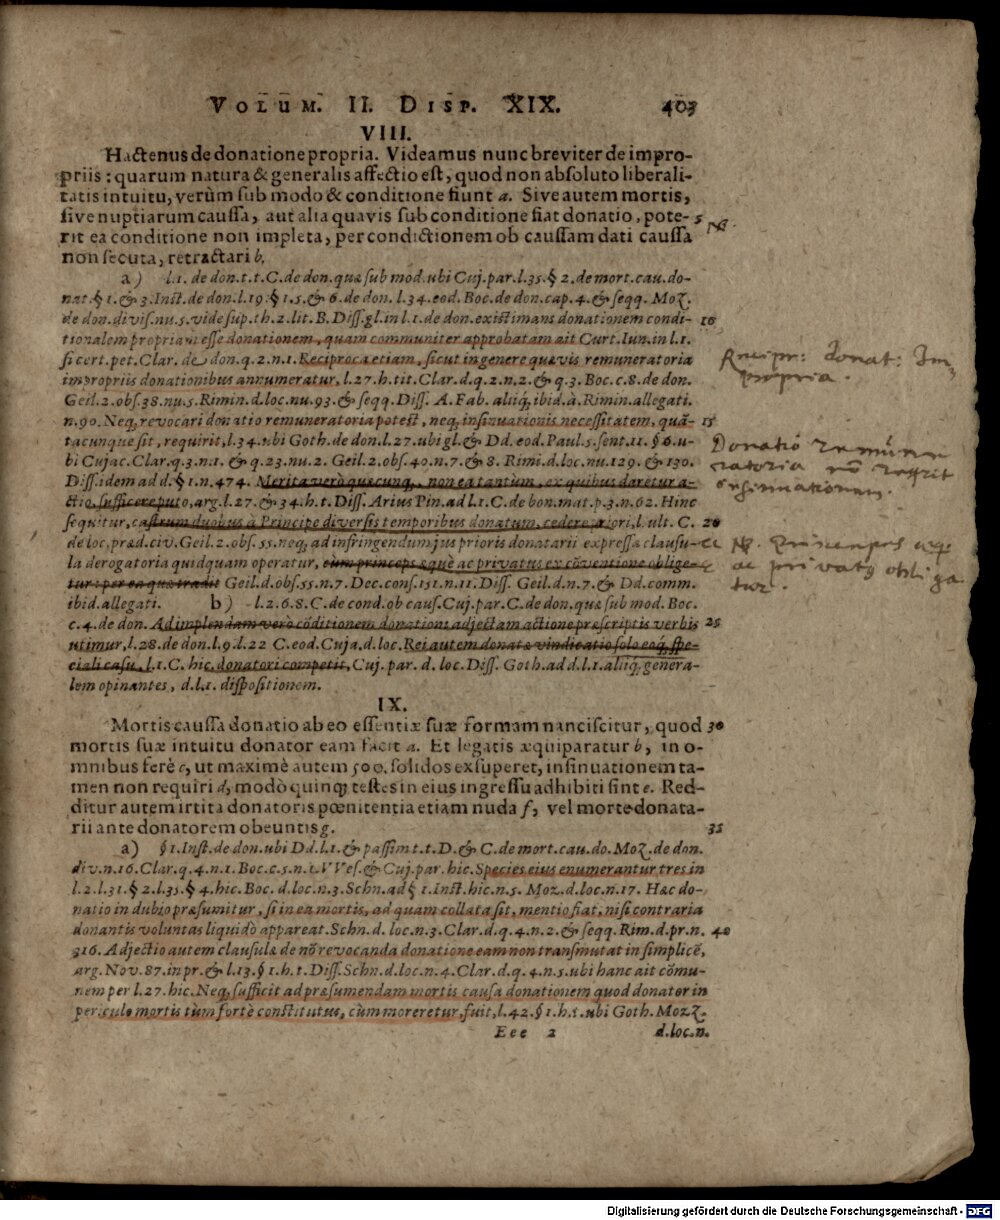 VOLUM. II. DISP. XIX. 403
VIII.
Hactenus de donatione propria. Videamus nunc breviter de impro-
priis: quarum natura & generalis affectio est, quod non absoluto liberali-
tatis intuitu, verùm sub modo & conditione fiunt a. Sive autem mortis,
sive nuptiarum caussa, aut alia quavis sub conditione fiat donatio, pote- 5
rit ea conditione non impleta, per condictionem ob caussam dati caussa
non secuta, retractari b.
a) l.1. de don.t.t.C.de don.quæ sub mod.ubi Cuj.par.l.35.§ 2.de mort.cau.do-
nat.§ 1.& 3.Inst.de don.l.19.§ 1.5.& 6.de don. l.34.eod. Boc.de don.cap.4.& seqq. Moz.
de don.divis.nu.5.vide sup.th.2.lit.B.Diss.gl.in l.1.de don.existimans donationem condi- 10
tionalem propriam esse donationem, quam communiter approbatam ait Curt.Iun.in l.1.
si cert.pet.Clar. de don.q.2.n.1.Reciproca etiam, sicut in genere quævis remuneratoria
impropriis donationibus annumeratur, l.27.h.tit.Clar.d.q.2.n.2.& q.3. Boc.c.8.de don.
Geil.2.obs.38.nu.5.Rimin.d.loc.nu.93.& seqq.Diss. A.Fab.aliiq;ibid.à.Rimin.allegati.
n.90. Neq; revocari donatio remuneratoria potest, neq; insinuationis necessitatem, quā- 15
tacunque sit, requirit, l.34.ubi Goth.de don.l.27.ubi gl.& Dd.eod.Paul.5.sent.11. §6.u-
bi Cujac.Clar.q.3.n.1. & q.23.nu.2. Geil.2.obs.40.n.7.& 8. Rimi.d.loc.nu.129. & 130.
Diss.idem ad d.§ 1.n.474. Merita verò quæcunq;, non ea tantum, ex quibus daretur a-
ctio, sufficere puto, arg.l.27.& 34.h.t. Diss. Arius Pin.ad l.1.C.de bon.mat.p.3.n.62. Hinc
sequitur, castrum duobus à Principe diversis temporibus donatum, cedere priori, l.ult. C. 20
de loc.præd.civ.Geil.2.obs.55.neq; ad infringendum jus prioris donatarii expressa clausu-
la derogatoria quidquam operatur, cùm princeps æquè ac privatus ex cōventione oblige-
tur: per ea quæ tradit Geil.d.obs.55.n.7. Dec.cons.151.n.11.Diss. Geil.d.n.7.& Dd.comm.
ibid.allegati. b) l.2.6.8.C.de cond.ob caus.Cuj.par.C.de don.quæ sub mod.Boc.
c.4.de don. Ad implendam vero cōditionem donationi adjectam actione præscriptis verbis 25
utimur, l.28.de don.l.9.l.22 C.eod.Cuja.d.loc.Rei autem donatæ vindicatio solo eoq; spe-
ciali casu, l.1.C. hic, donatori competit, Cuj.par. d. loc. Diss. Goth.ad d.l.1.aliiq; genera-
lem opinantes, d.l.1. dispositionem.
IX.
Mortis caussa donatio ab eo essentiæ suæ formam nanciscitur, quod 30
mortis suæ intuitu donator eam facit a. Et legatis æquiparatur b, in o-
mnibus ferè c, ut maximè autem 500. solidos exsuperet, insinuationem ta-
men non requiri d, modò quinq; testes in eius ingressu adhibiti sint e. Red-
ditur autem irrita donatoris pœnitentia etiam nuda f, vel morte donata-
rii ante donatorem obeuntis g. 35
a) §1.Inst.de don.ubi Dd.l.1.& passim t.t.D.& C.de mort.cau.do.Moz.de don.
div.n.16.Clar.q.4.n.1.Boc.c.5.n.1.VVes.& Cuj.par.hic.Species eius enumerantur tres in
l.2.l.31.§ 2.l.35.§ 4.hic.Boc. d.loc.n.3.Schn.ad § 1.Inst.hic.n.5. Moz.d.loc.n.17. Hæc do-
natio in dubio præsumitur, si in ea mortis, ad quam collata sit, mentio fiat, nisi contraria
donantis voluntas liquidò appareat.Schn.d. loc.n.3.Clar.d.q.4.n.2.& seqq.Rim.d.pr.n. 40
316. Adjectio autem clausulæ de nō revocanda donatione eam non transmutat in simplicē,
arg.Nov.87.in pr.& l.13.§ 1.h.t.Diss.Schn.d.loc.n.4.Clar.d.q.4.n.5.ubi hanc ait cōmu-
nem per l.27.hic.Neq; sufficit ad præsumendam mortis causa donationem quod donator in
periculo mortis tùm fortè constitutus, cùm moreretur, fuit, l.42.§1.h.t.ubi Goth.Moz.
Eee 2 d.loc.n.
Recipr: donat: Im-
propria.
Donatio remune
ratoria nō reqrit
insinuationem.
NB. Princeps æq;
ac privatq obliga
tur.
Digitalisierung gefördert durch die Deutsche Forschungsgemeinschaft - DFG